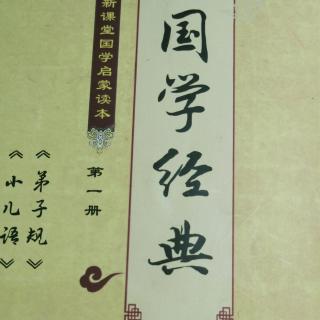 国学经典
新课堂国学启蒙读本
第一册
《弟子规》
《小儿语》